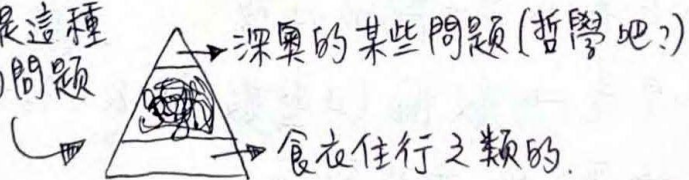 是這種
問題
深奧的某些問題(哲學吧?)
食衣住行之類的.